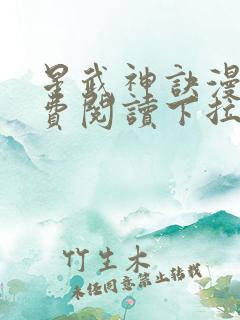 星武神訣漫
費閱讀下拉
竹生木
未经同意禁止转载